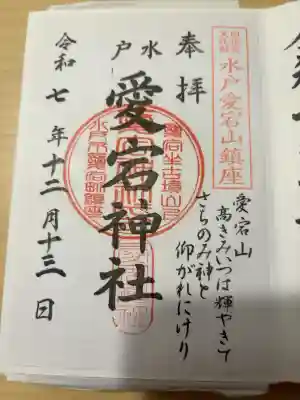 水戸愛宕山鎮座
愛宕山
高きみいつは輝やきて
さちのみ神と
仰がれにけり
奉拝
水戸
愛宕神社
水戸市愛宕町鎮座
令和七年十二月十三日